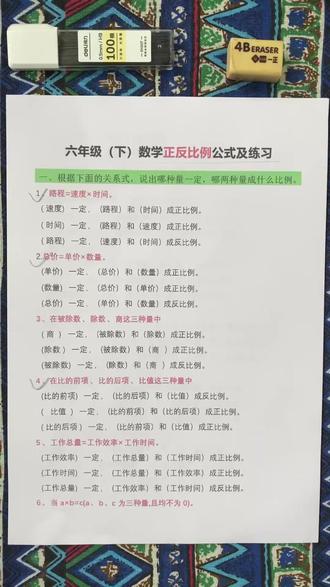 deli得力
0.5mm/HB
100根
4B ERASER
六年级（下）数学正反比例公式及练习
一、根据下面的关系式，说出哪种量一定，哪两种量成什么比例。
1、路程=速度×时间。
（速度）一定，（路程）和（时间）成正比例。
（时间）一定，（路程）和（速度）成正比例。
（路程）一定，（速度）和（时间）成反比例。
2.总价=单价×数量。
（单价）一定，（总价）和（数量）成正比例。
（数量）一定，（总价）和（单价）成正比例。
（总价）一定，（单价）和（数量）成反比例。
3、在被除数、除数、商这三种量中
（商）一定，（被除数）和（除数）成正比例。
（除数）一定，（被除数）和（商）成正比例。
（被除数）一定，（除数）和（商）成反比例。
4、在比的前项、比的后项、比值这三种量中
（比的前项）一定，（比的后项）和（比值）成反比例。
（比值）一定，（比的前项）和（比的后项）成正比例。
（比的后项）一定，（比的前项）和（比值）成正比例。
5、工作总量=工作效率×工作时间。
（工作效率）一定，（工作总量）和（工作时间）成正比例。
（工作时间）一定，（工作总量）和（工作效率）成正比例。
（工作总量）一定，（工作效率）和（工作时间）成反比例。
6、当 a×b=c(a、b、c 为三种量,且均不为 0)。